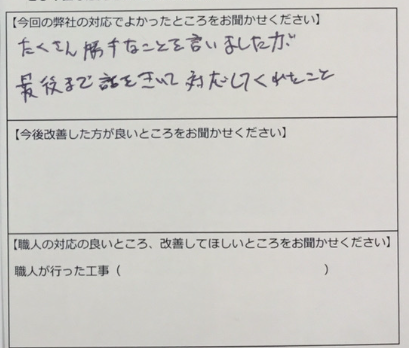 【今回の弊社の対応でよかったところをお聞かせください】
たくさん勝手なことを言いましたが
最後まで話をきいて対応してくれたこと
【今後改善した方が良いところをお聞かせください】
【職人の対応の良いところ、改善してほしいところをお聞かせください】
職人が行った工事（　　　　　　　　　　　　　　　　　）